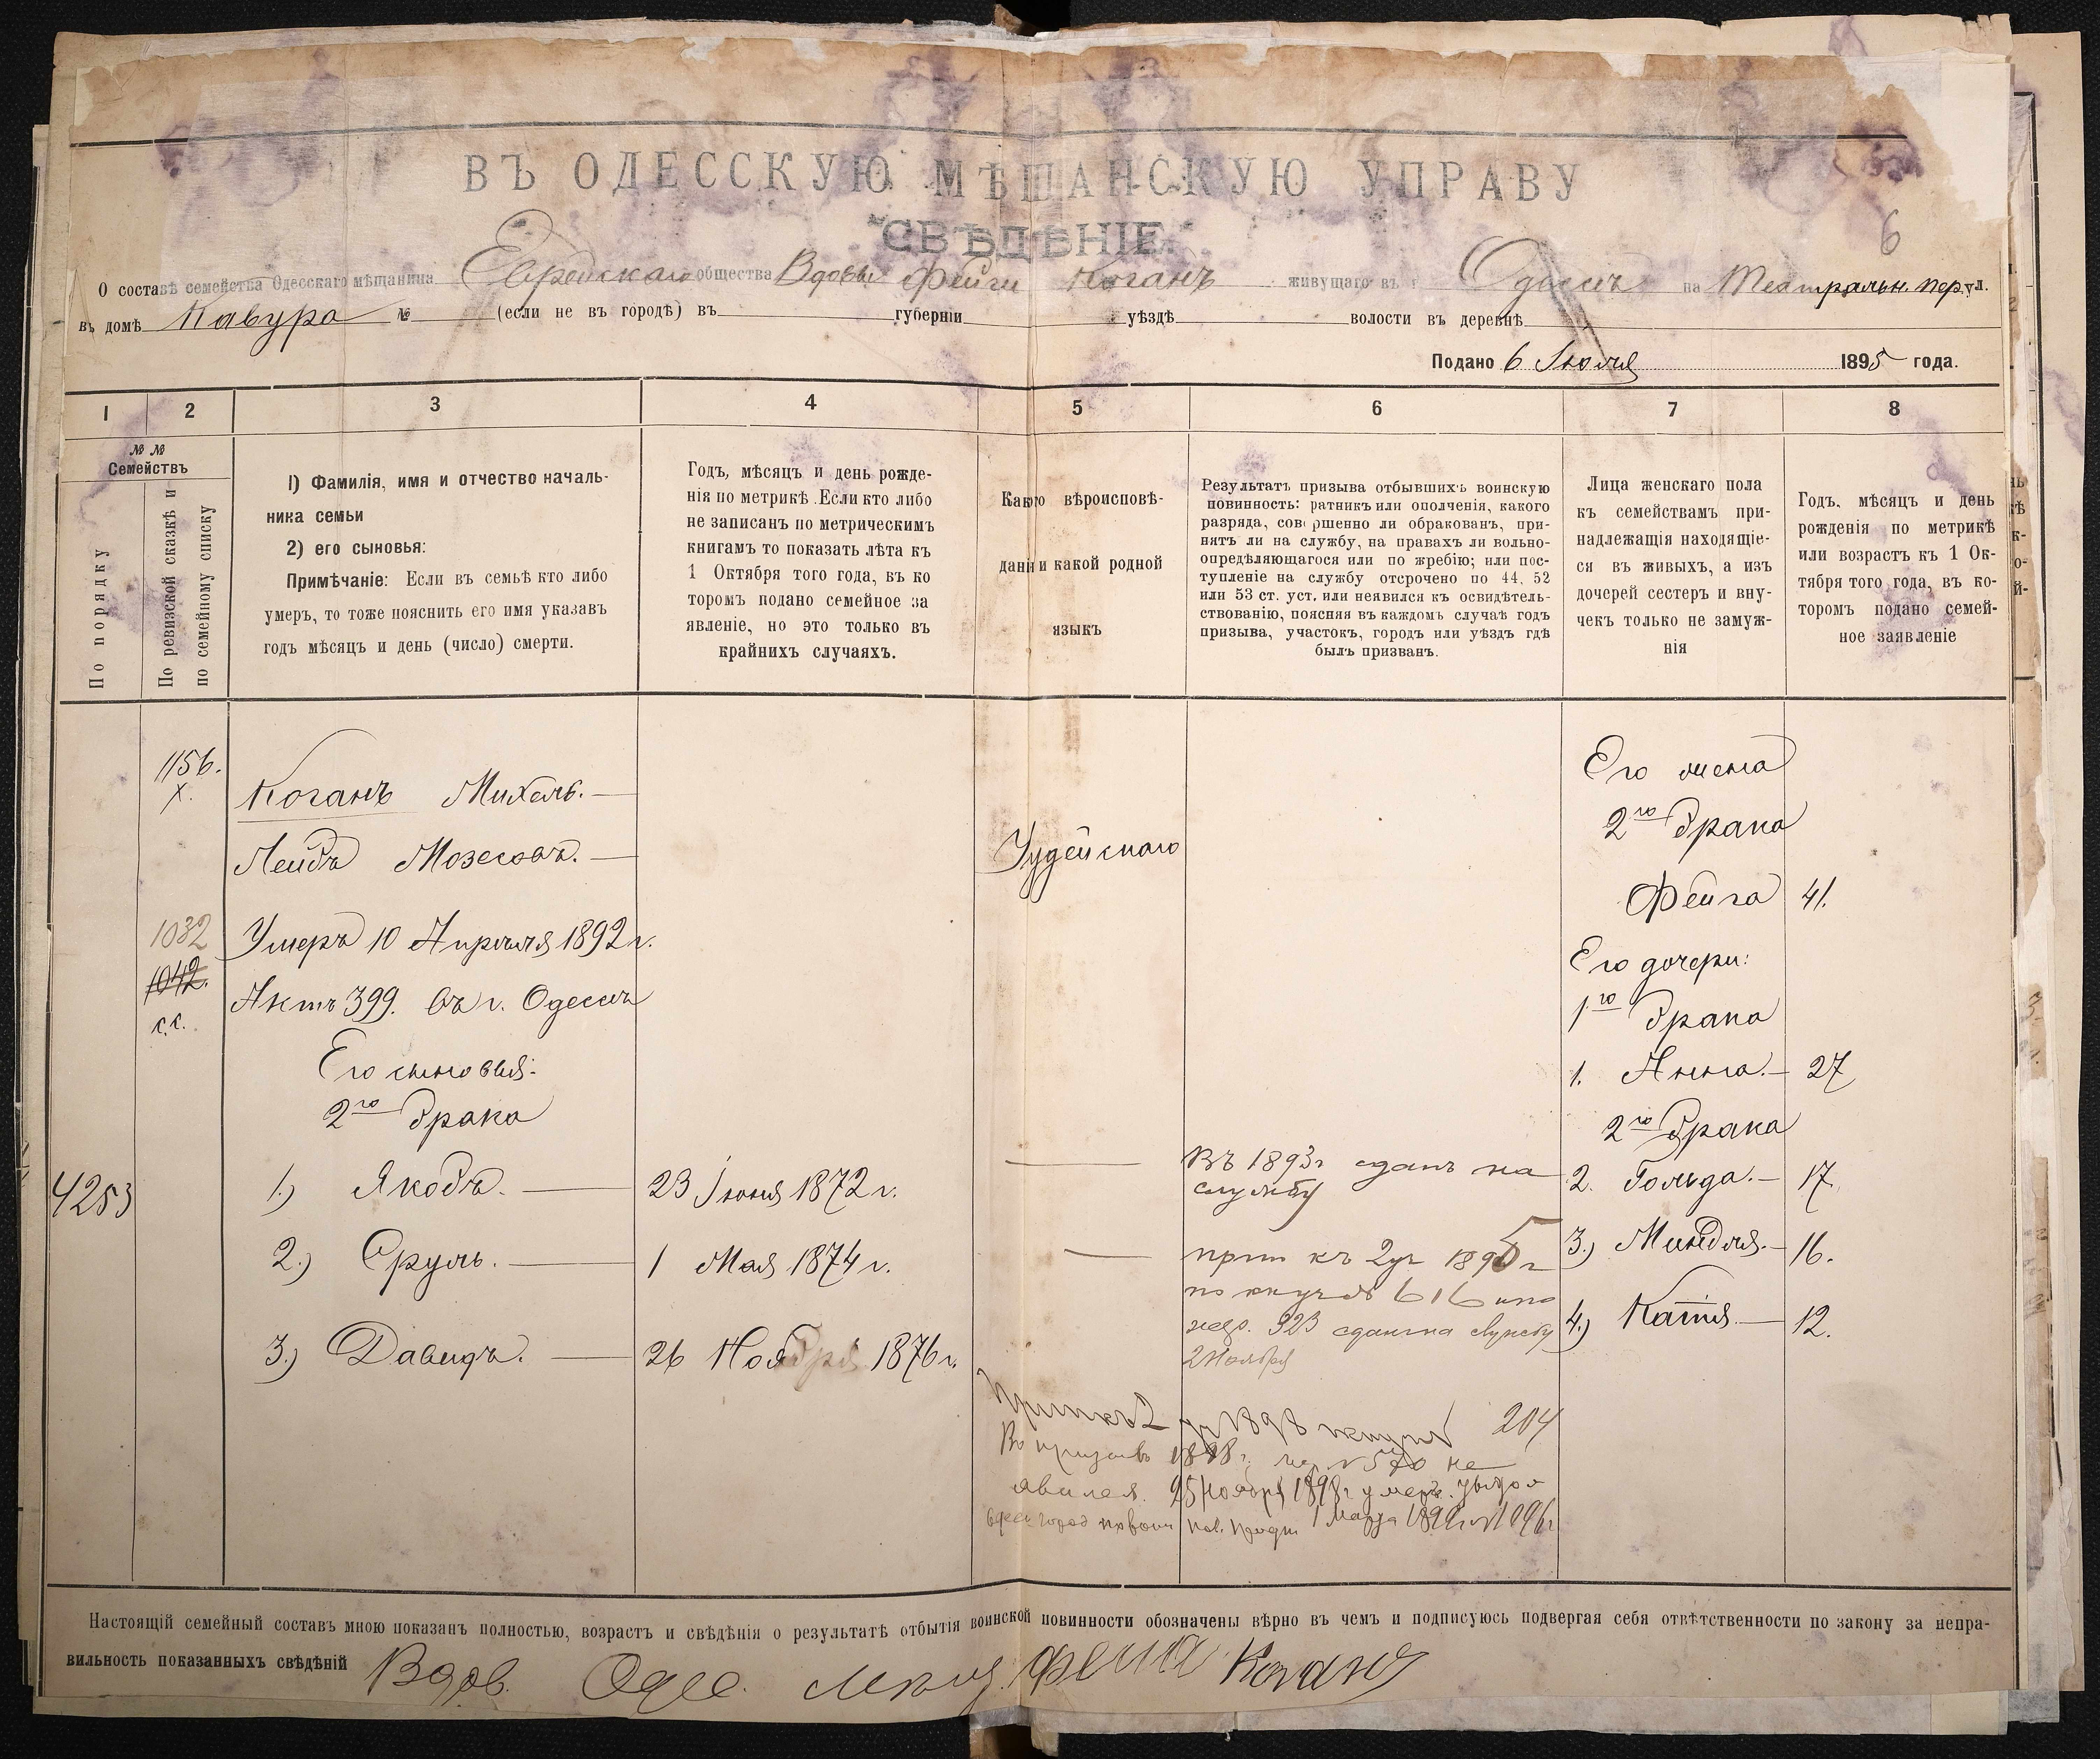 ВЪ ОДЕССКУЮ МѢЩАНСКУЮ УПРАВУ
СВѢДѢНІЕ.
6
О составѣ семейства Одесскаго мѣщанина Еврейскаго общества Вдовы Фейги Коганъ живущаго въ г. Одессѣ на Театральн. пер. ул.
въ домѣ Кавура № (если не въ городѣ) въ губерніи уѣздѣ волости въ деревнѣ
Подано 6 Іюля 1895 года.
1 2 3 4 5 6 7 8
№ №
Семействъ
По порядку
По ревизской сказкѣ и
по семейному списку
1) Фамилія, имя и отчество началь-
ника семьи
2) его сыновья:
Примѣчаніе: Если въ семьѣ кто либо
умеръ, то тоже пояснить его имя указавъ
годъ мѣсяцъ и день (число) смерти.
Годъ, мѣсяцъ и день рожде-
нія по метрикѣ. Если кто либо
не записанъ по метрическимъ
книгамъ то показать лѣта къ
1 Октября того года, въ ко
торомъ подано семейное за
явленіе, но это только въ
крайнихъ случаяхъ.
Какого вѣроисповѣ-
данія и какой родной
языкъ
Результатъ призыва отбывшихъ воинскую
повинность: ратникъ или ополченія, какого
разряда, совершенно ли обракованъ, при-
нятъ ли на службу, на правахъ ли вольно-
опредѣляющагося или по жребію; или пос-
тупленіе на службу отсрочено по 44, 52
или 53 ст. уст. или неявился къ освидѣтель-
ствованію, поясняя въ каждомъ случаѣ годъ
призыва, участокъ, городъ или уѣздъ гдѣ
былъ призванъ.
Лица женскаго пола
къ семействамъ при-
надлежащія находящіе-
ся въ живыхъ, а изъ
дочерей сестеръ и вну-
чекъ только не замуж-
нія
Годъ, мѣсяцъ и день
рожденія по метрикѣ
или возрастъ къ 1 Ок-
тября того года, въ ко-
торомъ подано семей-
ное заявленіе
1156.
х.
Коганъ Михель.
Лейбъ Мозесовъ.
1032
1042.
с.с.
Умеръ 10 Апрѣля 1892 г.
Актъ 399. въ г. Одессѣ
Его сыновья:
2го брака
4253
1.) Якобъ. — 23 Іюня 1872 г.
2.) Сруль. — 1 Мая 1874 г.
3.) Давидъ. — 26 Ноября 1876 г.
Іудейскаго
Въ 1893 г сданъ на
службу
къ 2 уч 1895 г
616
жер. 323 сданъ на службу
2 Ноября
2 уч 1898 204
Въ призывъ 1898 г. № 570 не
явился. 25 Ноября 1898 г умеръ.
1 Марта 1899 г
Его жена
2го брака
Фейга 41.
Его дочери:
1го брака
1. Анна. — 27
2го брака
2. Гольда. — 17.
3.) Миндля. — 16.
4.) Катя. — 12.
Настоящій семейный составъ мною показанъ полностью, возрастъ и свѣдѣнія о результатѣ отбытія воинской повинности обозначены вѣрно въ чемъ и подписуюсь подвергая себя отвѣтственности по закону за непра-
вильность показанныхъ свѣдѣній Вдов. Одес. мѣщ. Фейга Коганъ